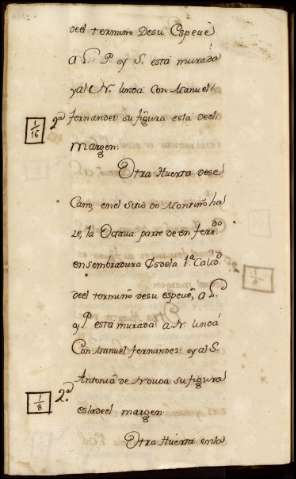 del termino Desu Especie
a L. P. oy S. está murada
y al N. linda Con Manuel
1/16 2ª fernandes su figura esta del
margen.
Otra Huerta dese
Cam, en el Sitio do Montiño ha
ze, la Octava parte de un ferrdo
en sembradura Es de la 1ª Calidd
del termino desu espeue, a L.
y P está murada a N linda
Con Manuel fernandes: oy al S.
Antonia de Novoa su figura
1/8 2ª
esladel margen
Otra Huerta enla